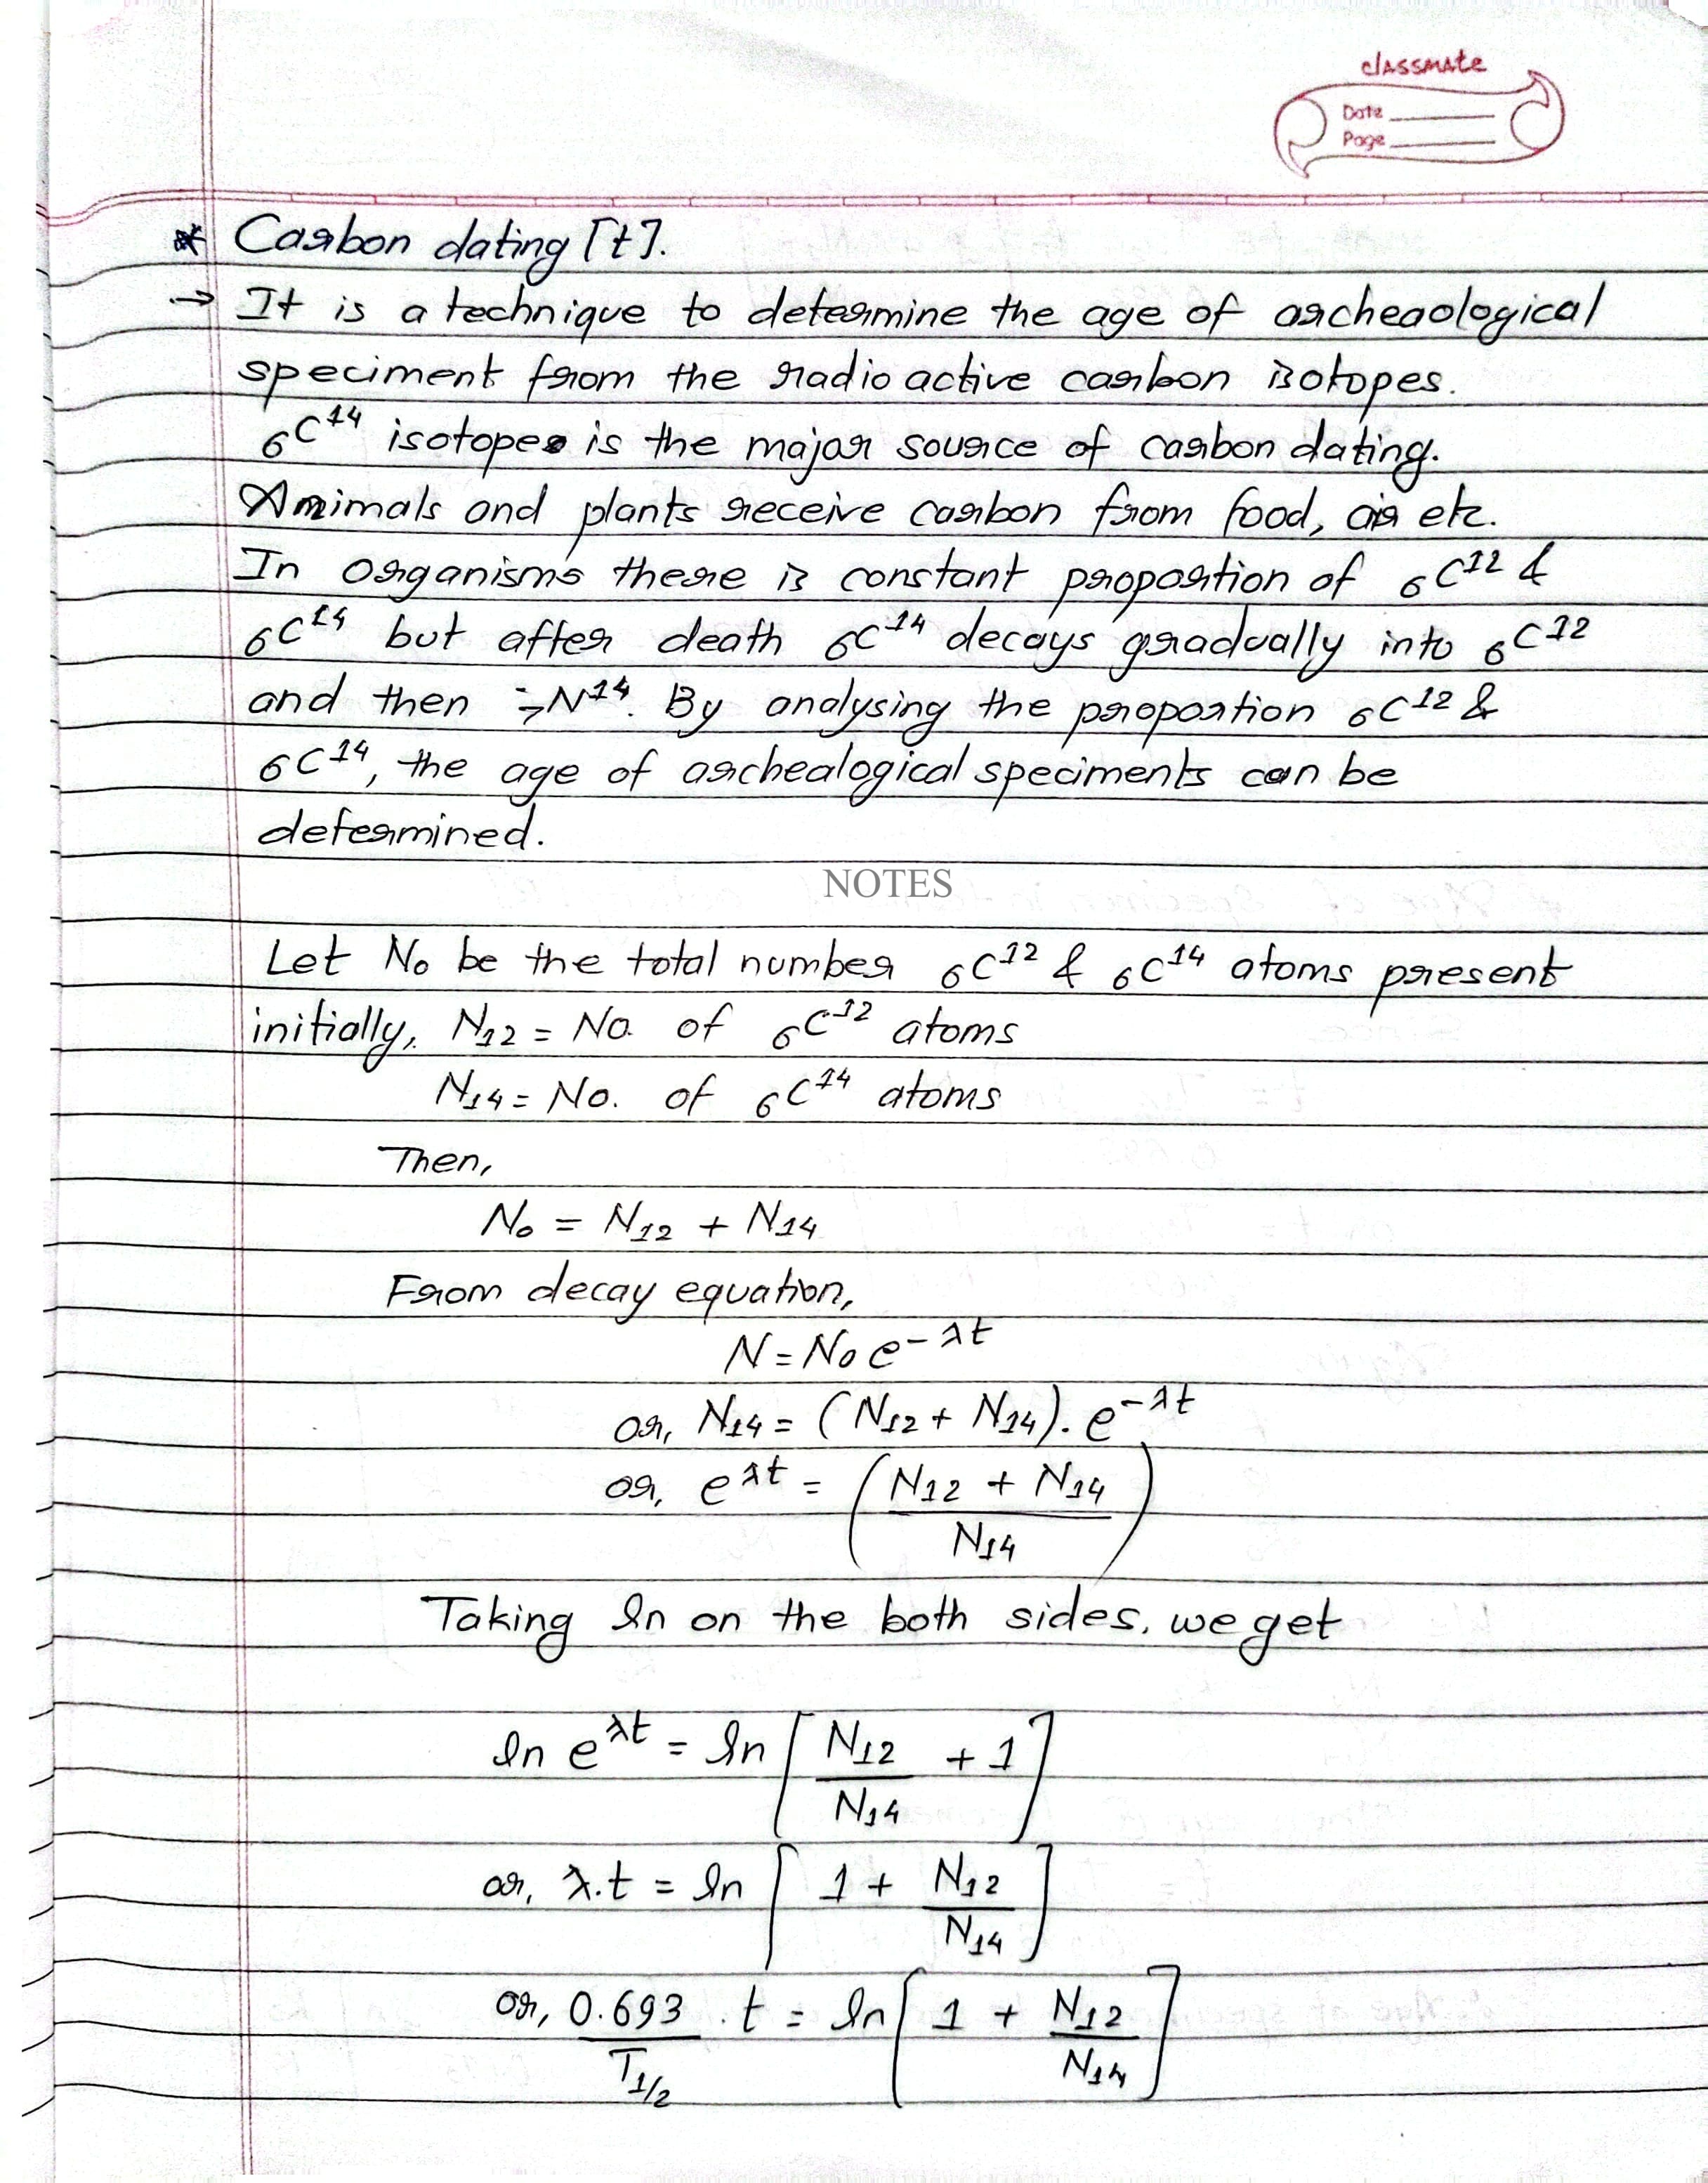 classmate
Date
Page
* Carbon dating [t].
→ It is a technique to determine the age of archeaological
speciment from the radio active carbon isotopes.
₆C¹⁴ isotopes is the major source of carbon dating.
Animals and plants receive carbon from food, air etc.
In organisms there is constant proportion of ₆C¹² &
₆C¹⁴ but after death ₆C¹⁴ decays gradually into ₆C¹²
and then ₇N¹⁴. By analysing the proportion ₆C¹² &
₆C¹⁴, the age of archealogical speciments can be
determined.
NOTES
Let N₀ be the total number ₆C¹² & ₆C¹⁴ atoms present
initially, N₁₂ = No. of ₆C¹² atoms
N₁₄ = No. of ₆C¹⁴ atoms
Then,
N₀ = N₁₂ + N₁₄
From decay equation,
N = N₀ e^(-λt)
or, N₁₄ = (N₁₂ + N₁₄). e^(-λt)
or, e^(λt) = ((N₁₂ + N₁₄)/N₁₄)
Taking ln on the both sides, we get
ln e^(λt) = ln [N₁₂/N₁₄ + 1]
or, λ.t = ln [1 + N₁₂/N₁₄]
or, 0.693/T₁/₂ . t = ln [1 + N₁₂/N₁₄]